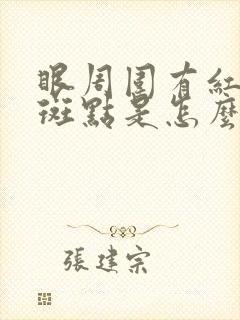 眼周圍有紅
斑點是怎麼
張建宗